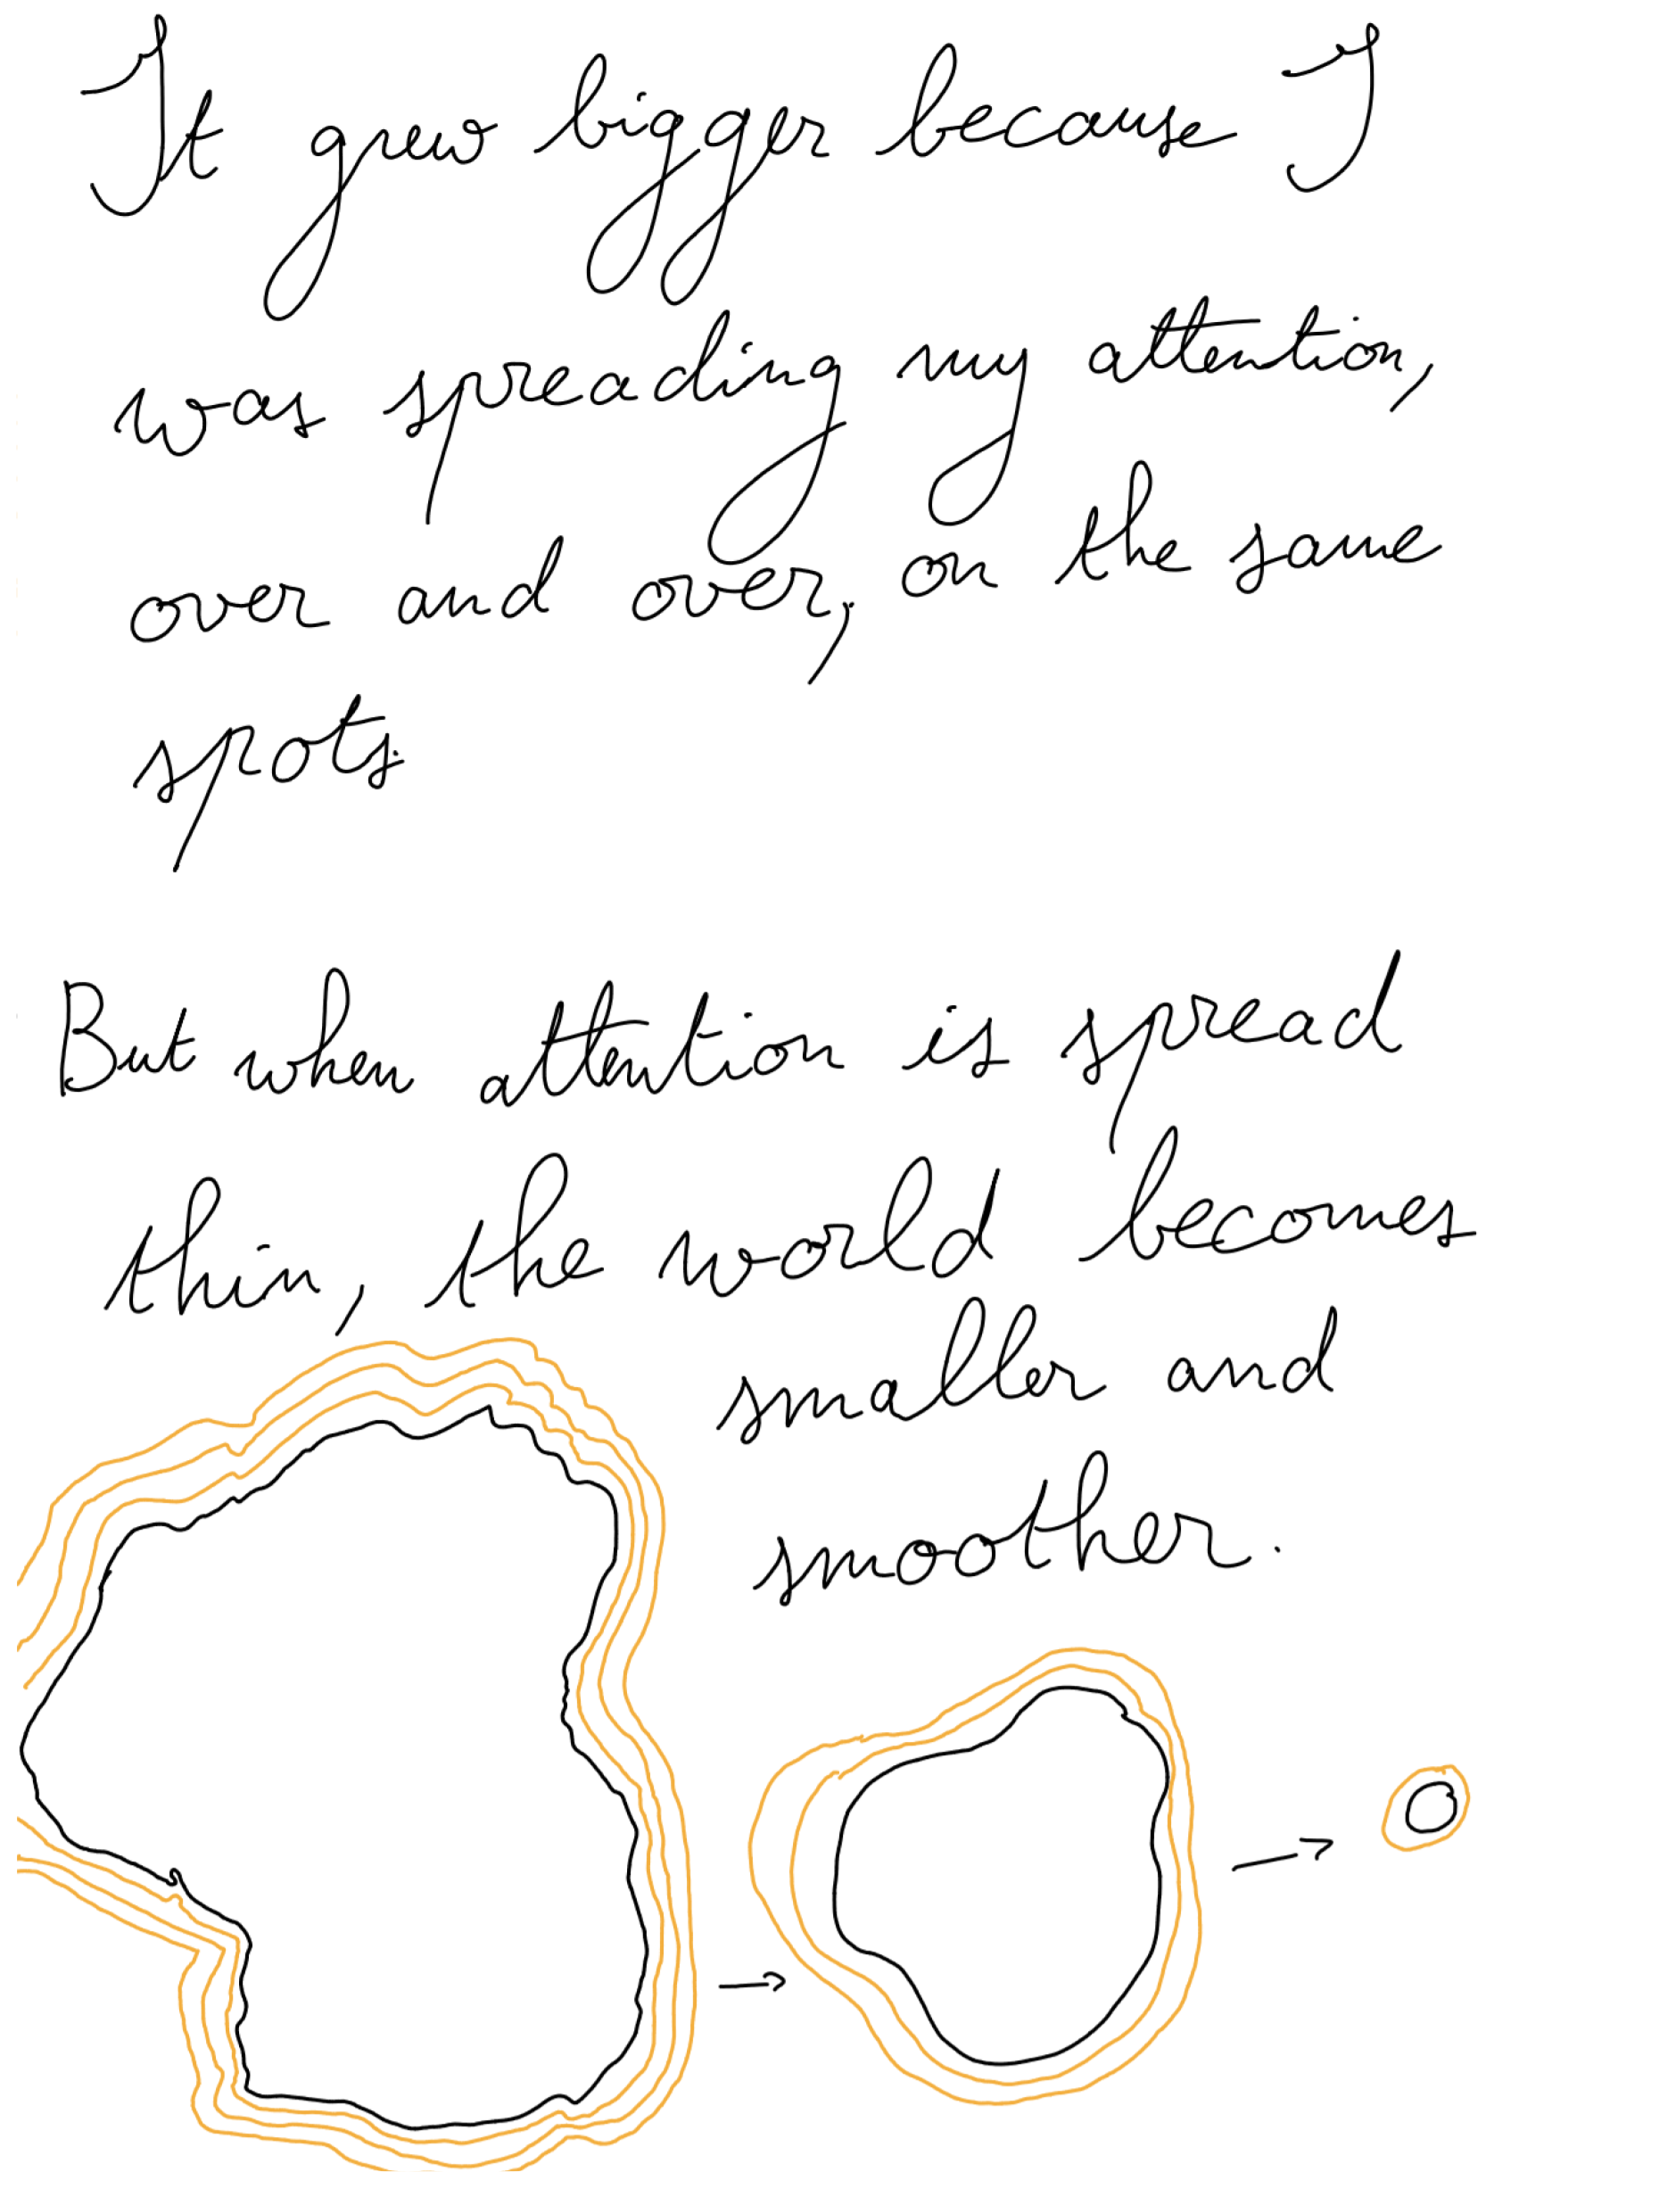 It grew bigger because I
was spreading my attention,
over and over, on the same
spots.
But when attention is spread
thin, the world becomes
smaller and
smoother.